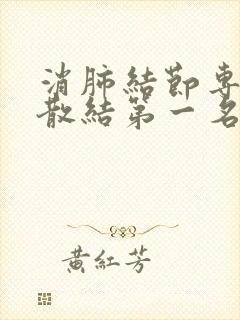 消肺結節專
散結第一名
黃紅芳